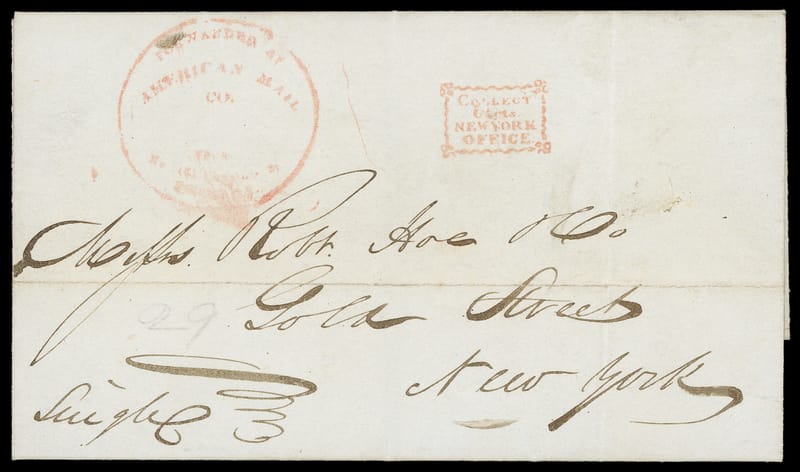 FORWARDED BY
AMERICAN MAIL
CO.
FROM
COLLECT
6 cts.
NEW YORK
OFFICE.
Messrs. Robt. Hoe & Co
Gold Street
New York
Single
29